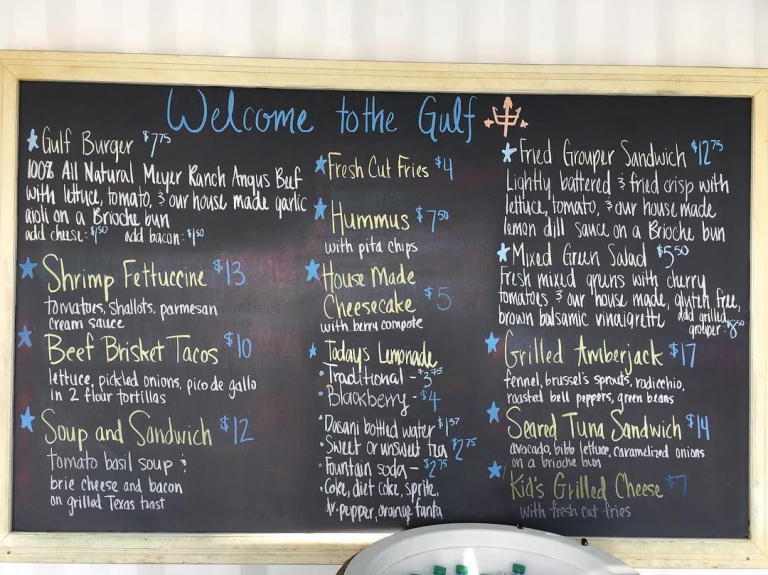 Welcome to the Gulf
Gulf Burger $7.75
100% All Natural Meyer Ranch Angus Beef
with lettuce, tomato, & our house made garlic
aioli on a Brioche bun
add cheese: $1.50 add bacon: $1.50
Shrimp Fettuccine $13
tomatoes, shallots, parmesan
cream sauce
Beef Brisket Tacos $10
lettuce, pickled onions, pico de gallo
in 2 flour tortillas
Soup and Sandwich $12
tomato basil soup &
brie cheese and bacon
on grilled Texas toast
Fresh Cut Fries $4
Hummus $7.50
with pita chips
House Made
Cheesecake $5
with berry compote
Todays Lemonade
Traditional - $3.75
Blackberry - $4
Dasani bottled water $1.37
Sweet or unsweet tea $2.75
Fountain soda - $2.75
Coke, diet coke, sprite,
dr. pepper, orange fanta
Fried Grouper Sandwich $12.75
Lightly battered & fried crisp with
lettuce, tomato, & our house made
lemon dill sauce on a Brioche bun
Mixed Green Salad $5.50
Fresh mixed greens with cherry
tomatoes & our house made, gluten free,
brown balsamic vinaigrette add grilled
grouper: $8.50
Grilled Amberjack $17
fennel, brussel's sprouts, radicchio,
roasted bell peppers, green beans
Seared Tuna Sandwich $14
avocado, bibb lettuce, caramelized onions
on a brioche bun
Kid's Grilled Cheese $7
with fresh cut fries